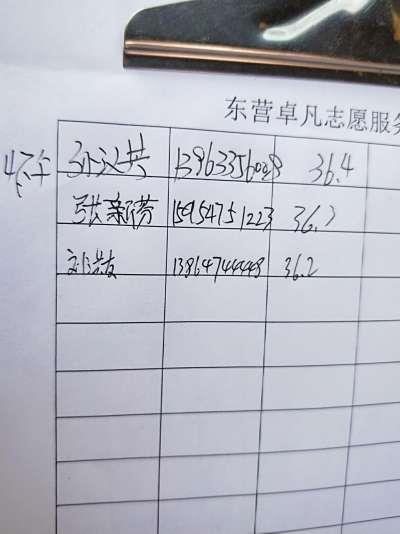 东营卓凡志愿服务
下午 孙议共 13963356028 36.4
张新芬 15954751223 36.2
刘洪友 13864744448 36.2